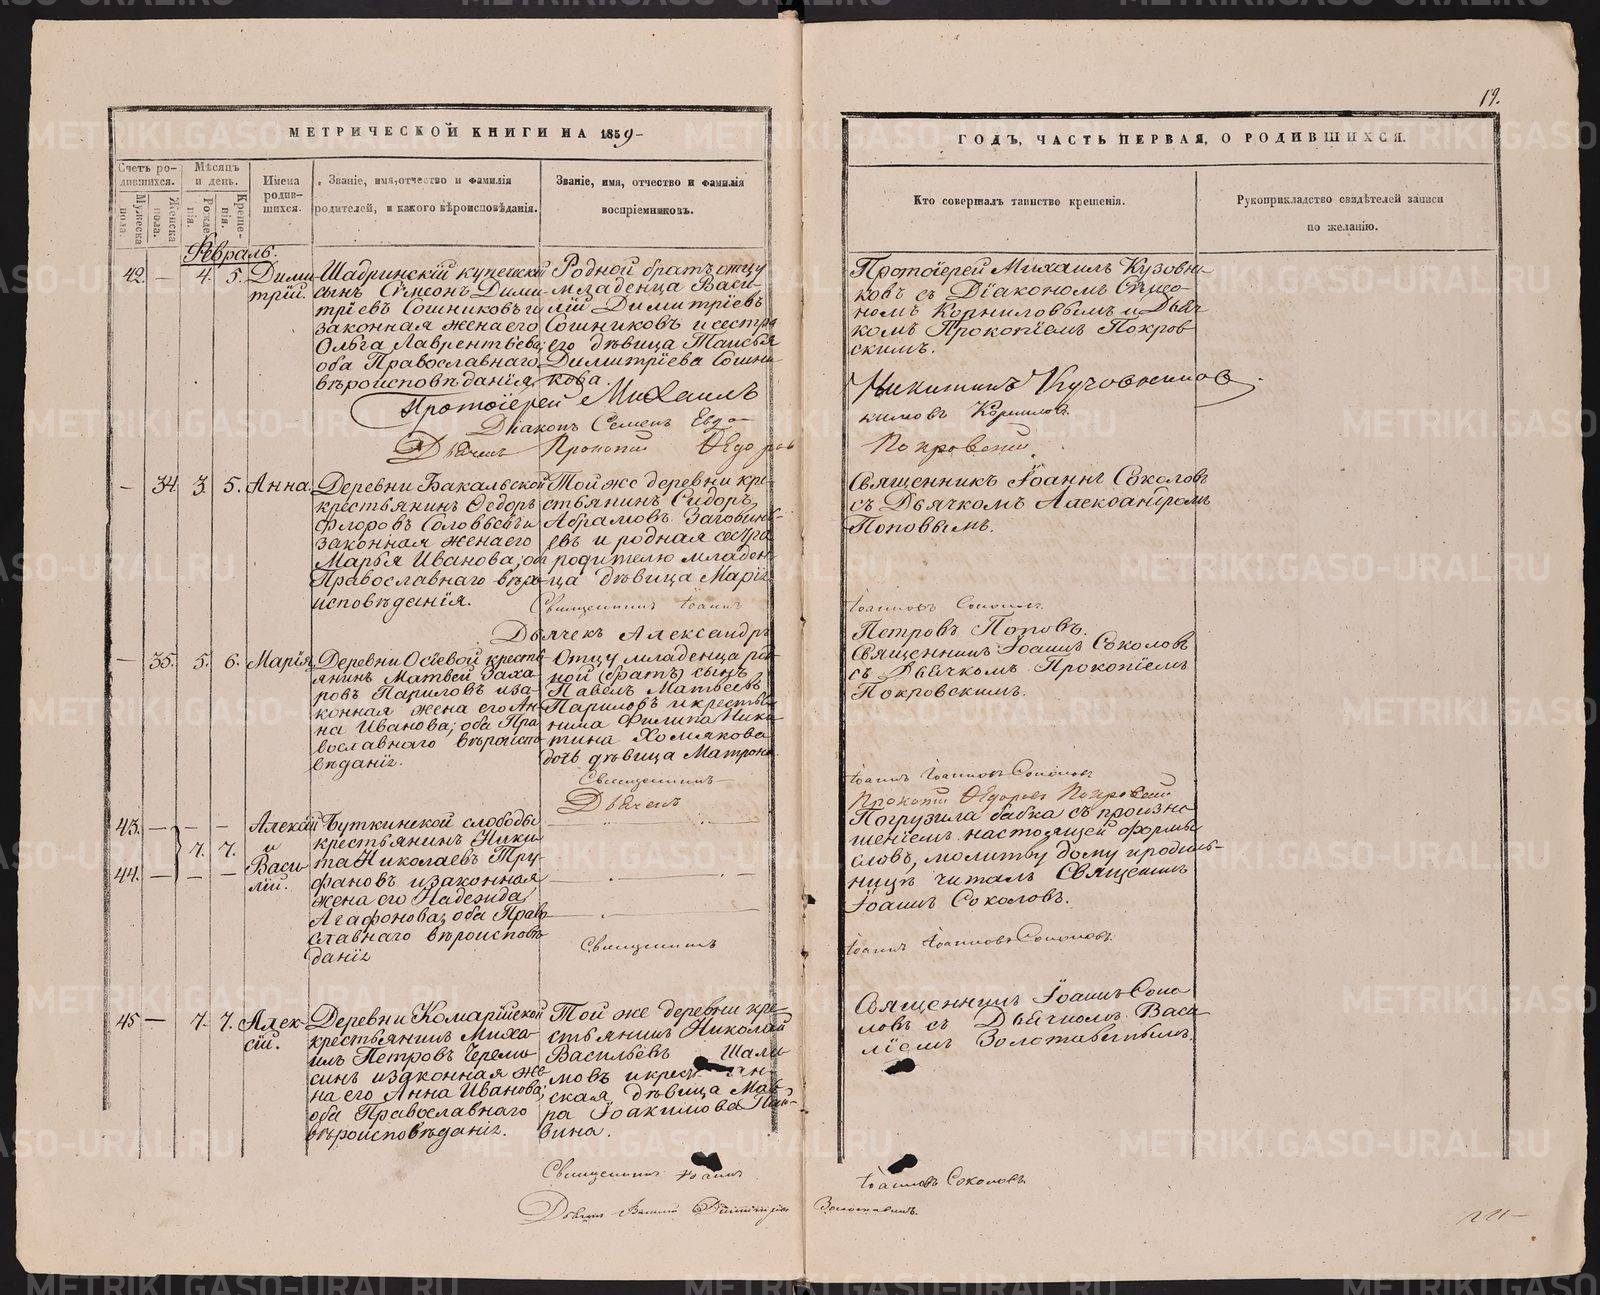 19.
МЕТРИЧЕСКОЙ КНИГИ НА 1859
ГОДЪ, ЧАСТЬ ПЕРВАЯ, О РОДИВШИХСЯ.
Счетъ ро-
дившихся.
Мужеска
пола.
Женска
пола.
Мѣсяцъ
и день.
Рожде-
нія.
Креще-
нія.
Имена
родив-
шихся.
Званіе, имя, отчество и фамилія
родителей, и какого вѣроисповѣданія.
Званіе, имя, отчество и фамилія
воспріемниковъ.
Кто совершалъ таинство крещенія.
Рукоприкладство свидѣтелей записи
по желанію.
Февраль.
42. — 4. 5. Дими-
трій.
Шадринскій купеческій
сынъ Сѵмеонъ Дими-
тріевъ Сошниковъ и
законная жена его
Ольга Лаврентьева;
оба Православнаго
вѣроисповѣданія.
Родной братъ отцу
младенца Васи-
лій Димитріевъ
Сошниковъ и сестра
его дѣвица Таисья
Димитріева Сошни-
кова.
Протоіерей Михаилъ Кузовни-
ковъ съ Діакономъ Сѵмео-
номъ Корниловымъ и Дьяч-
комъ Прокопіемъ Покров-
скимъ.
Протоіерей Михаилъ
Діаконъ Семенъ Евдо-
кимовъ Корниловъ
Дьячекъ Прокопій Ѳедоровъ
Покровскій
— 34. 3. 5. Анна.
Деревни Бакальской
крестьянинъ Ѳедоръ
Флоровъ Соловьевъ и
законная жена его
Марья Иванова; оба
Православнаго вѣро-
исповѣданія.
Той же деревни кре-
стьянинъ Сидоръ
Абрамовъ
евъ и родная сестра
родителю младен-
ца дѣвица Марія
Священникъ Іоаннъ Соколовъ
съ Дьячкомъ Александромъ
Поповымъ.
Священникъ Іоаннъ
Іоанновъ Соколовъ
Дьячекъ Александръ
Петровъ Поповъ.
— 35. 5. 6. Марія.
Деревни Осіевой кресть-
янинъ Матвей Заха-
ровъ Париловъ и за-
конная жена его Ан-
на Иванова; оба Пра-
вославнаго вѣроиспо-
вѣданія.
Отцу младенца род-
ной (братъ) сынъ
Павелъ Матвеевъ
Париловъ и крестья-
нина Филипа Ники-
тина Хомякова
дочь дѣвица Матрона
Священникъ Іоаннъ Соколовъ
съ Дьячкомъ Прокопіемъ
Покровскимъ.
Священникъ
Іоаннъ Іоанновъ Соколовъ
Дьячекъ
Прокопій Ѳедоровъ Покровскій
43. — — — Алексій
и 7. 7.
44. — — — Васи-
лій.
Буткинской слободы
крестьянинъ Ники-
та Николаевъ Тру-
фановъ и законная
жена его Надежда
Агафонова; оба Право-
славнаго вѣроисповѣ-
данія
Погрузила бабка съ произне-
шеніемъ настоящей формы
словъ, молитву дому и родиль-
ницѣ читалъ Священникъ
Іоаннъ Соколовъ.
Священникъ
Іоаннъ Іоанновъ Соколовъ.
45 — 7. 7. Алек-
сій.
Деревни Комарійской
крестьянинъ Миха-
илъ Петровъ Черемы-
синъ и законная же-
на его Анна Иванова;
оба Православнаго
вѣроисповѣданія.
Той же деревни кре-
стьянинъ Николай
Васильевъ Шали-
мовъ и крестьян-
ская дѣвица Мав-
ра Іоакимова Пай-
вина.
Священникъ Іоаннъ Соко-
ловъ съ Дьячкомъ Васи-
ліемъ
Священникъ Іоаннъ
Іоанновъ Соколовъ
Дьячекъ Василій